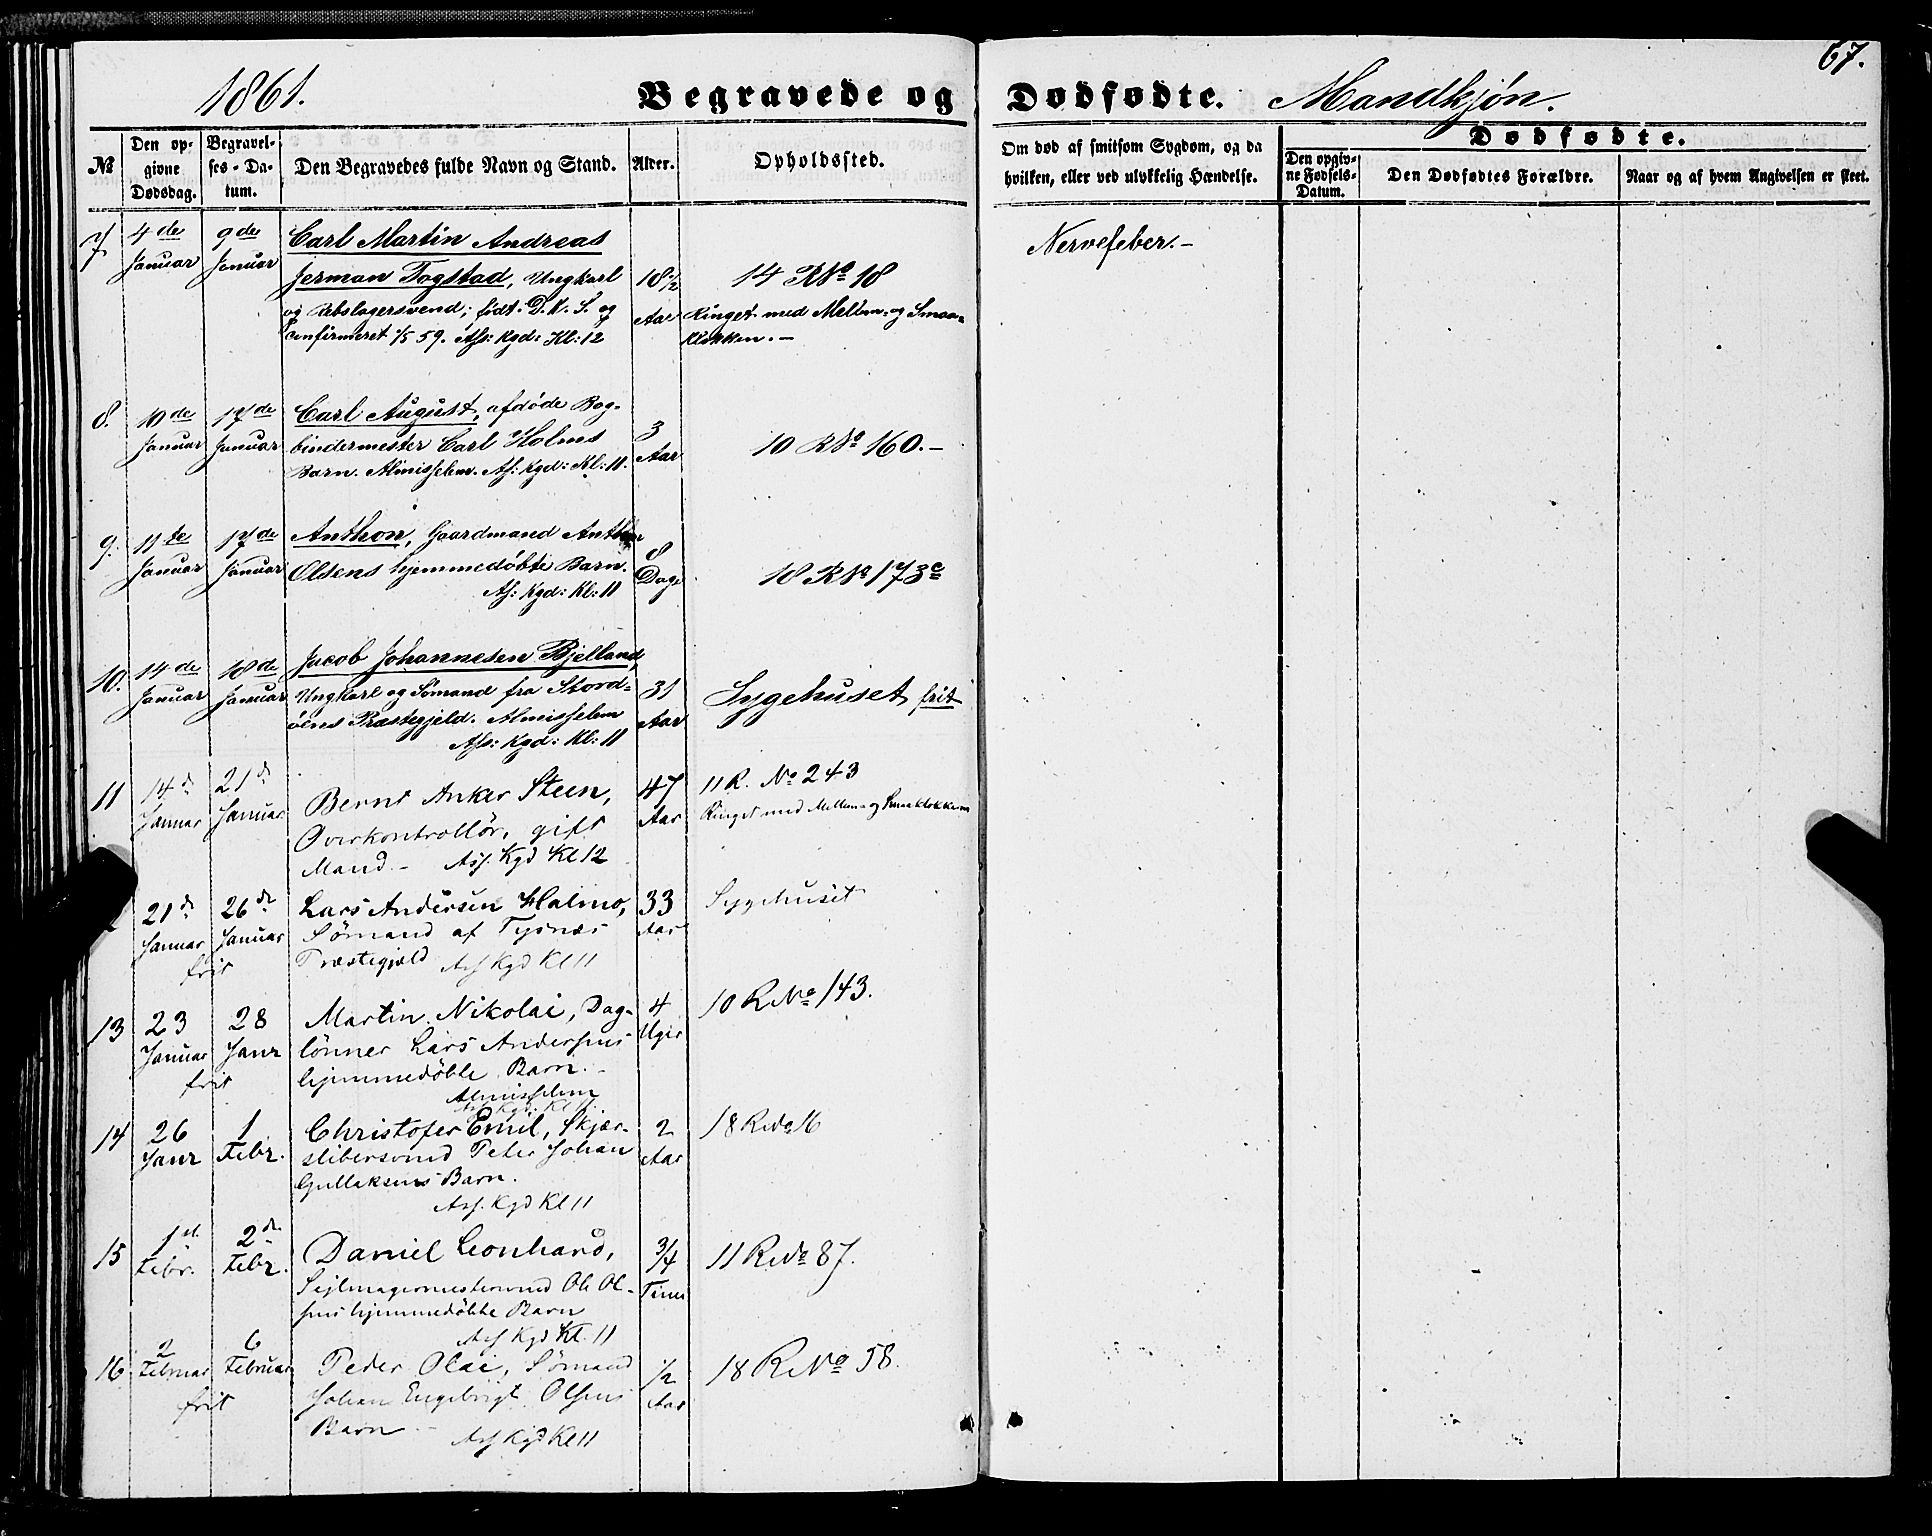 67.
1861. Begravede og Dødfødte. Mandkjøn.
№
Den op-
givne
Dødsdag.
Begravel-
ses-Da-
tum.
Den Begravedes fulde Navn og Stand.
Alder.
Opholdssted.
Om død af smitsom Sygdom, og da
hvilken, eller ved ulykkelig Hændelse.
Dødfødte.
Den opgiv-
ne Fødsels-
Datum.
Den Dødfødtes Forældre.
Naar og af hvem Angivelsen er skeet.
7
4de
Januar
9de
Januar
Carl Martin Andreas
Jerman Fogstad, Ungkarl
og Rebslagersvend; født D. K. S. og
Confirmeret 1/5 59. Ass: Kgd: Kl: 12
18 1/2
Aar
14 R No 18
Ringet med Mellem- og Smaa-
klokken.-
Nervefeber.-
8.
10de
Januar
17de
Januar
Carl August, afdøde Bog-
bindermester Carl Holms
Barn. Almisselem. As: Kgd: Kl: 11.
3
Aar
10 R No 160.-
9.
11te
Januar
17de
Januar
Anthon, Gaardmand Anthon
Olsens hjemmedøbte Barn.
As: Kgd: Kl: 11
8
Dage
18 R No 173c
10.
14de
Januar
18de
Januar
Jacob Johannesen Bjelland,
Ungkarl og Sømand fra Stord-
øens Præstegjeld. Almisselem
Ass: Kgd: Kl: 11
31
Aar
Sygehuset frit
11
14d
Januar
21d
Januar
Bernt Anker Steen,
Overkontrollør, gift
Mand.- Ass. Kgd Kl 12
47
Aar
11 R. No 243
Ringet med Mellem- og Smaaklokken
21d
Januar
26d
Januar
frit
Lars Andersen Halmo,
Sømand af Tysnæs
Præstegjæld Ass Kgd Kl 11
33
Aar
Sygehuset
13
23
Januar
28
Janr
frit
Martin Nikolai, Dag-
lønner Lars Andersens
hjemmedøbte Barn.-
Almisselem
Ass Kgd: Kl 11.
4
Uger
10 R No 143.
14
26
Janr
1
Febr.
Christofer Emil, Skjær-
slibersvend Peter Johan
Gullaksens Barn.
Ass. Kgd Kl 11
2
Aar
18 R No 16
15
1st
Febr.
2d
Febr.
Daniel Leonhard,
Sejlmagermestersvend Ole Ol-
sens hjemmedøbte Barn
Ass Kgd Kl. 11
3/4
Time
11 R No 87.
16
2
Februar
6
Februar
frit
Peder Olai, Sømand
Johan Engebrigt Olsens
Barn.- Ass Kgd Kl 11
1/2
Aar
18 R No 58.